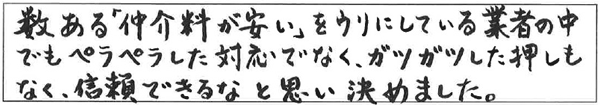 数ある「仲介料が安い」をウリにしている業者の中
でもペラペラした対応でなく、ガツガツした押しも
なく、信頼できるなと思い決めました。